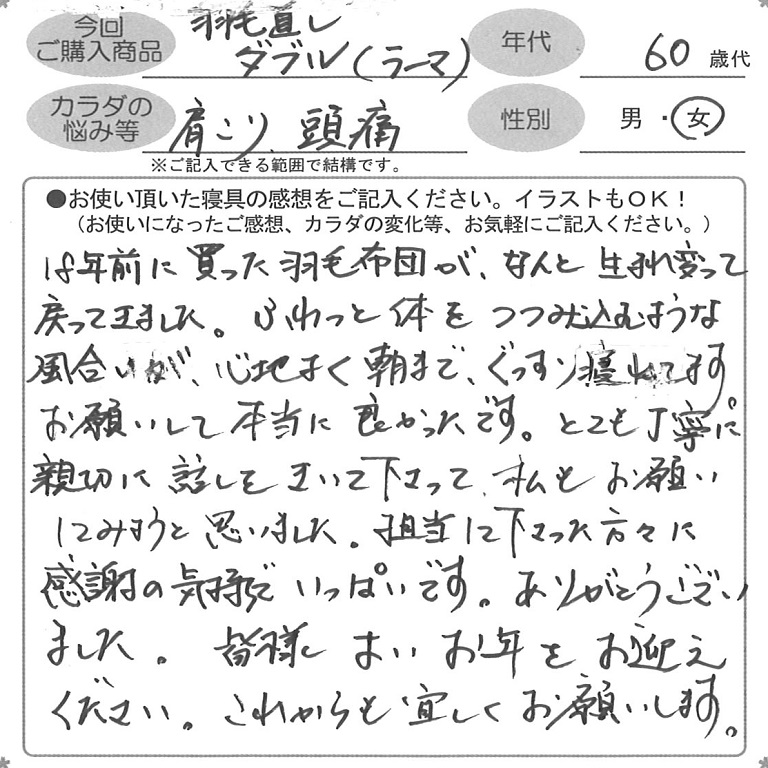 今回
ご購入商品
羽毛直し
ダブル(ラーマ)
年代
60 歳代
カラダの
悩み等
肩こり、頭痛
性別
男・女
※ご記入できる範囲で結構です。
●お使い頂いた寝具の感想をご記入ください。イラストもOK!
(お使いになったご感想、カラダの変化等、お気軽にご記入ください。)
18年前に買った羽毛布団が、なんと生まれ変って
戻ってきました。ふわっと体をつつみ込むような
風合いが、心地よく朝まで、ぐっすり寝れてます。
お願いして本当に良かったです。とても丁寧に
親切に話しをきいて下さって、私もお願い
してみようと思いました。担当して下さった方々に
感謝の気持でいっぱいです。ありがとうござい
ました。皆様よいお年をお迎え
ください。これからも宜しくお願いします。